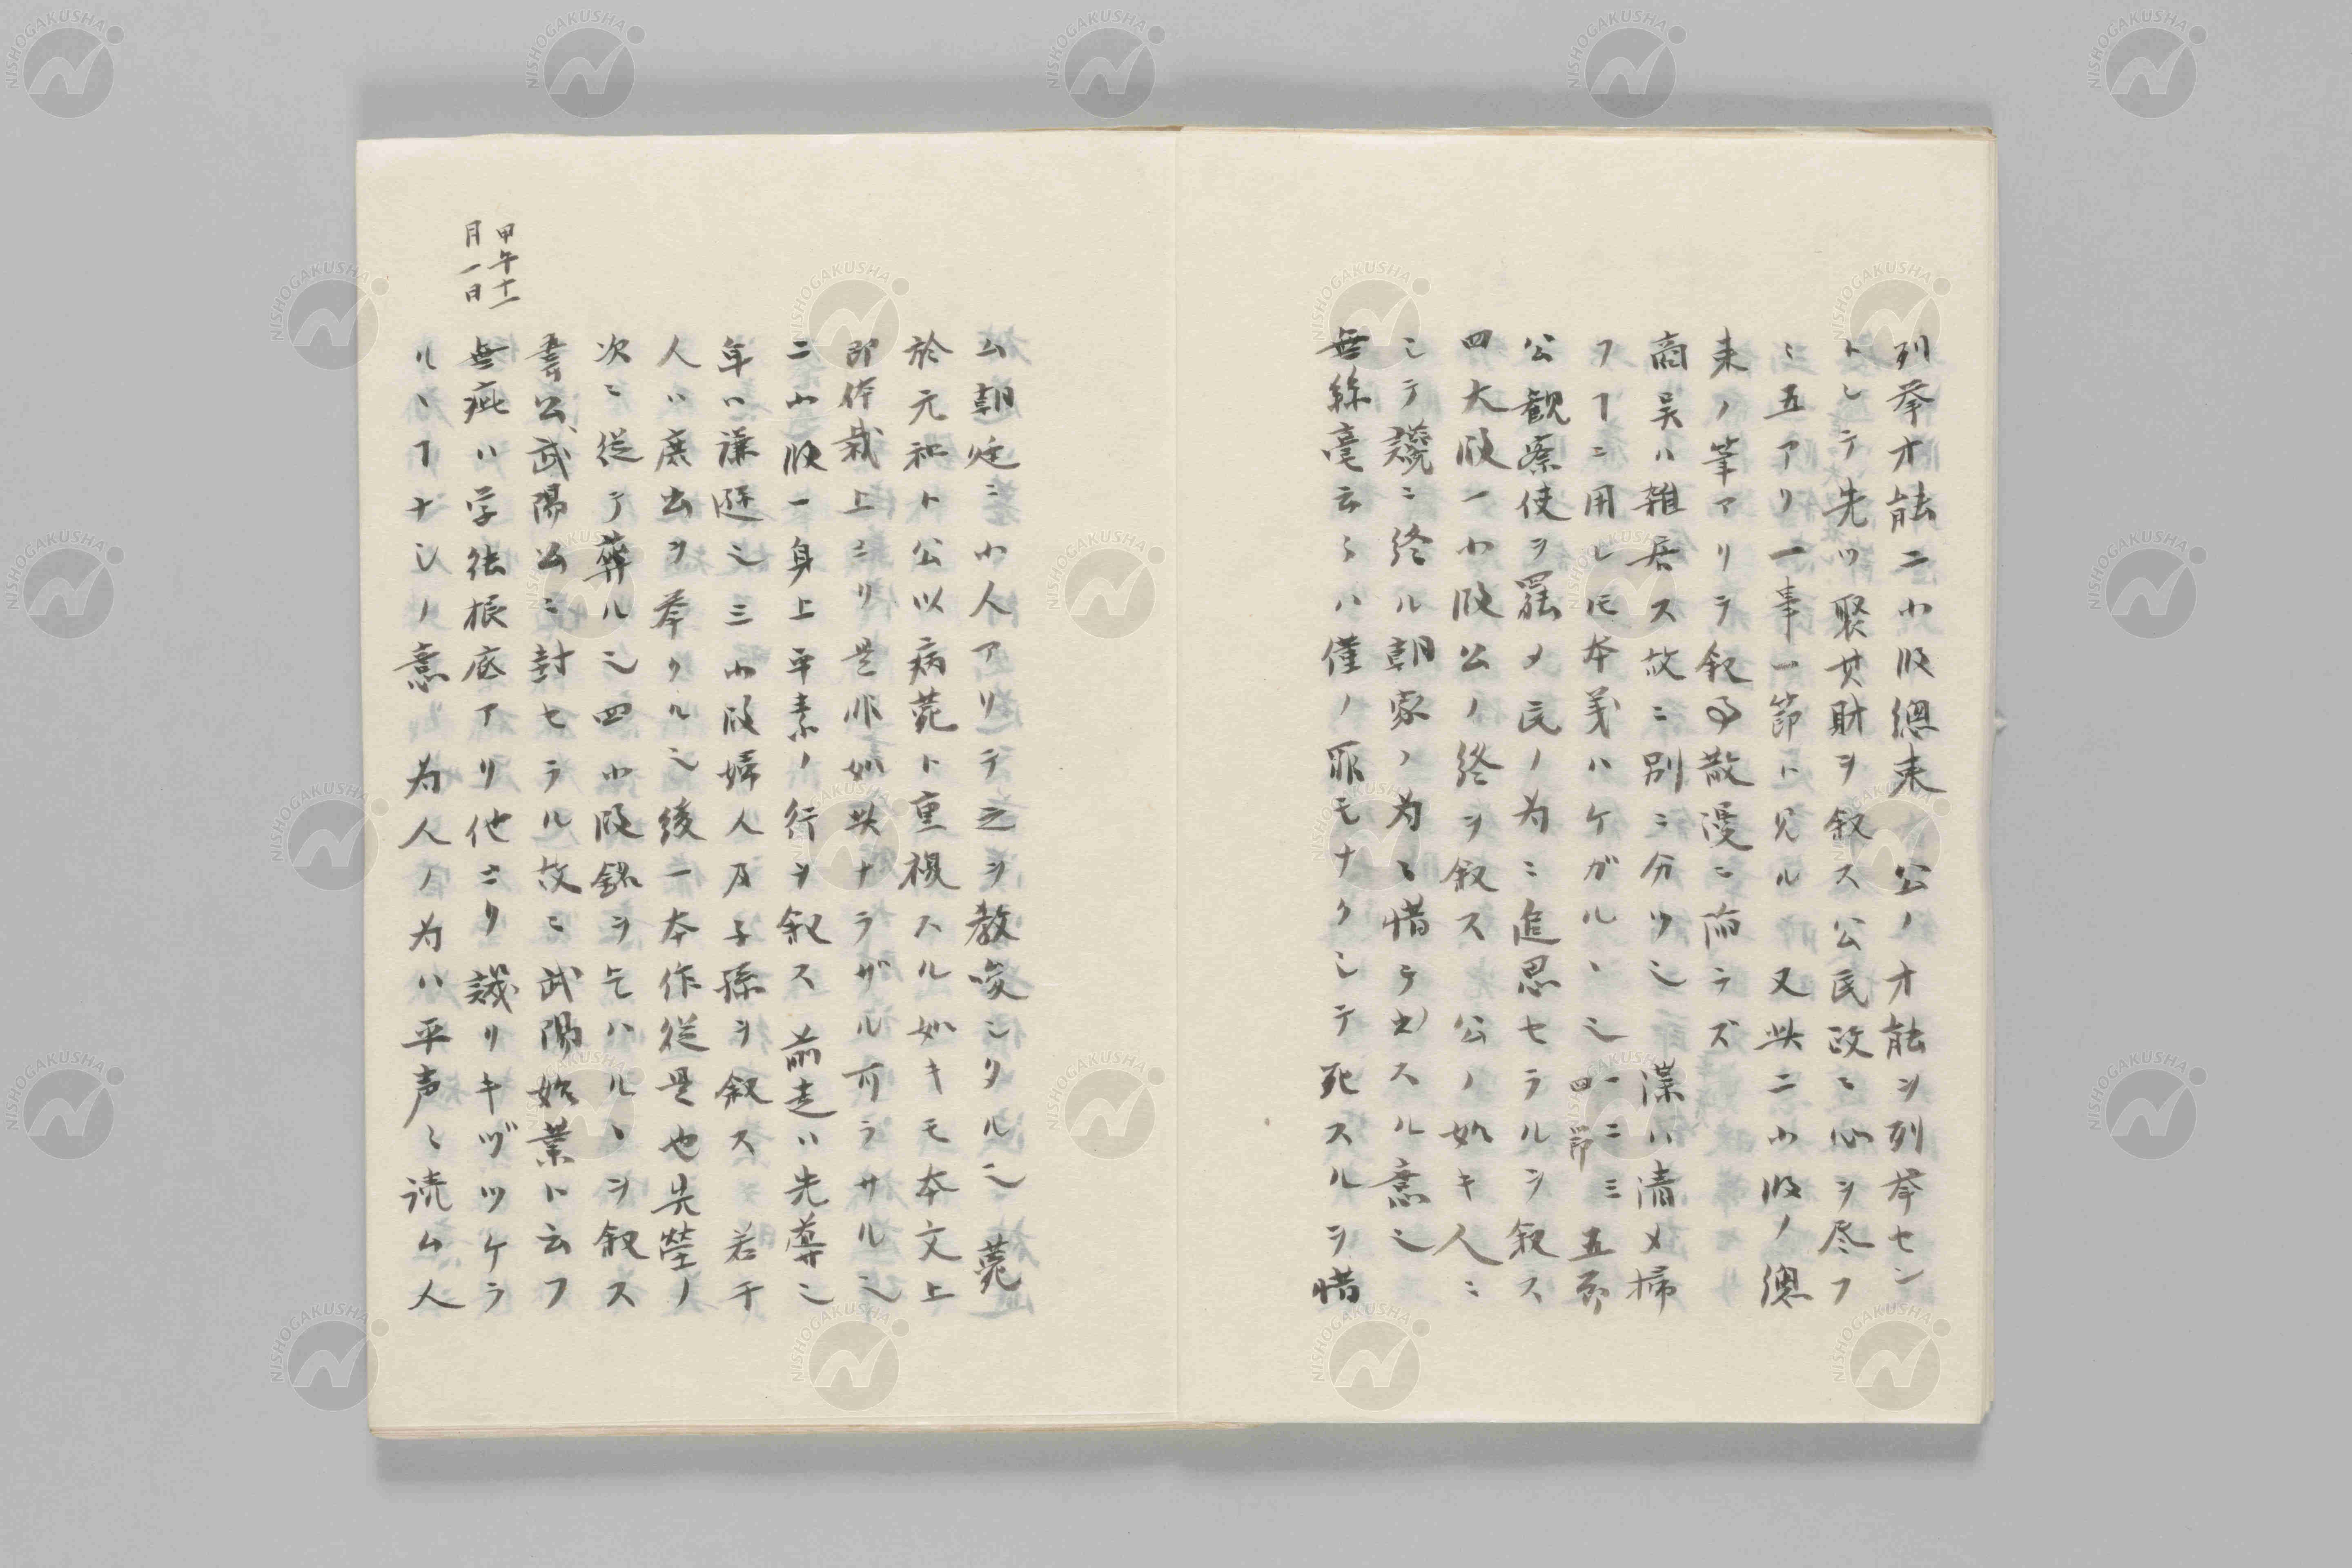 列挙才能二小段総束 公ノ才能ヲ列挙セン
トシテ先ツ聚其財ヲ叙ス公民政ニ心ヲ尽フ
ニ五アリ一事一節ト見ル 又此二小段ノ總
束ノ筆アリラ叙事散漫ニ而ラズ
商吴ハ雑居ス故ニ別ニ分ツ也 渫ハ清メ掃
フヿニ用レ𪜈本義ハケガルヽ也 一二三五節
四節
公観察使ヲ罷メ民ノ為ニ追思セラルヲ叙ス
四大段一小段公ノ終ヲ叙ス 公ノ如キ人ニ
シテ譏ニ終ル朝家ノ為ニ惜ラスル意也
無絲毫云々ハ僅ノ罪モナクシテ死スルヲ惜
ム朝廷ニ小人アリテ之ヲ教唆シタル也 薨
於元和ト公以病薨ト重複スル如キモ本文上
即体裁上ヨリ是非如此ナラザル可ラサル也
二小段一身上平素ノ行ヲ叙ス 前走ハ先導也
年ハ謙遜也三小段婦人及子孫ヲ叙ス 若干
人ハ庶出ヲ挙クル也後一本作従是也先塋ノ
次ニ従テ葬ル也四小段銘ヲ乞ハルヽヲ叙ス
書公武陽公ニ封セラル故ニ武陽始業ト云フ
無疵ハ学徒根底アリ他ヨリ譏リキヅツケラ
ルヽヿナシノ意 為人ノ為ハ平声ニ読ム人
甲午十一
月一日